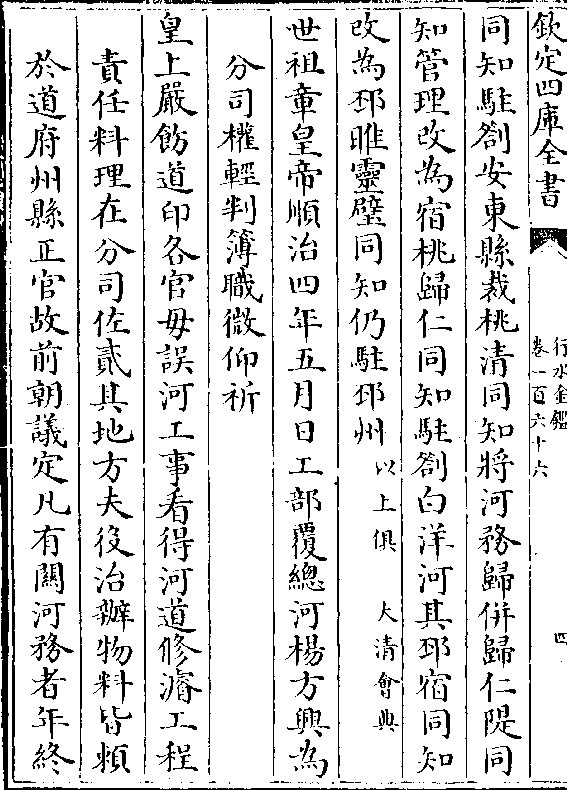 欽定四庫全書
行水金鑑
卷一百六十六
四
同知駐劄安東縣裁桃清同知將河務歸併歸仁隄同
知管理改為宿桃歸仁同知駐劄白洋河其邳宿同知
改為邳睢靈璧同知仍駐邳州以上俱大清會典
世祖章皇帝順治四年五月日工部覆總河楊方興為
分司權輕判簿職微仰祈
皇上嚴飭道印各官毋誤河工事看得河道修濬工程
責任料理在分司佐貳其地方夫役治辦物料皆頼
於道府州縣正官故前朝議定凡有關河務者年終